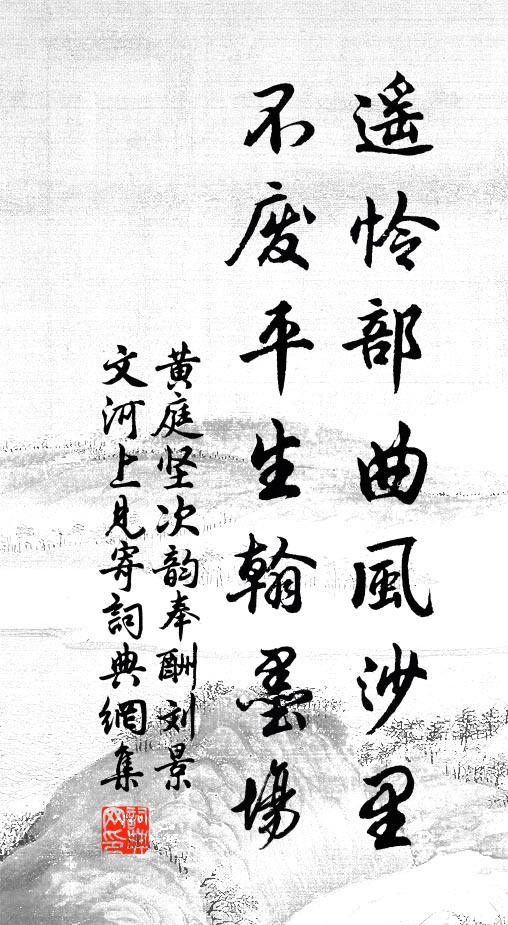 遥怜部曲風沙里
不废平生翰墨場
黄庭坚次韵奉酬刘景
文河上見寄詞典網集